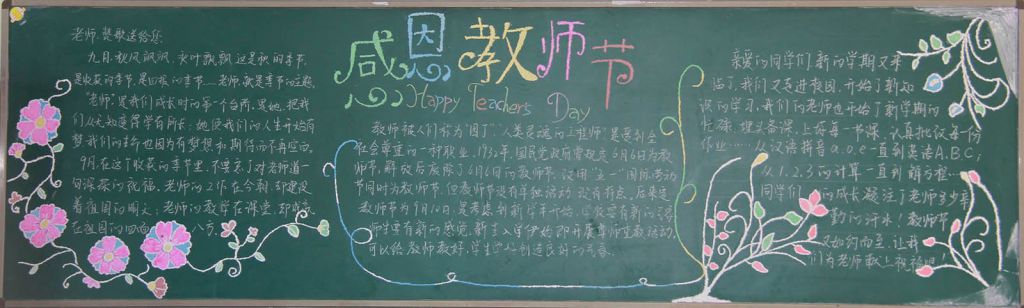 感恩教师节
Happy Teachers Day
老师,赞歌送给您
九月,秋风飒飒,黄叶飘飘,这是秋的季节,
是收获的季节,是回报的季节……老师,就是季节的主题。
"老师"是我们成长时的第一个台阶,是她,把我
们从无知变得学有所长;她使我们的人生开始有
梦,我们的青春也因为有梦想和期待而不再空白。
9月,在这个收获的季节里,不要忘了对老师道一
句深深的祝福。老师的工作在今朝,却建设
着祖国的明天;老师的教学在课堂,却成就
在祖国的四面八方。
教师被人们称为"园丁","人类灵魂的工程师",是受到全
社会尊重的一种职业。1932年,国民党政府曾规定6月6日为教
师节,解放后废除了6月6日的教师节,改用"五一"国际劳动
节同时为教师节,但教师节没有单独活动,没有特点,后来定
教师节为9月10日,是考虑到新学年开始,学校要有新的
师生要有新的感觉,新生入学伊始,即开展尊师重教活动,
可以给"教师教好,学生学好"创造良好的气氛。
亲爱的同学们,新的学期又来
临了,我们又走进校园,开始了新知
识的学习,我们的老师也开始了新学期的
忙碌,埋头备课,上好每一节课,认真批改每一份
作业……从汉语拼音a.o.e一直到英语A,B,C;
从1.2.3的计算一直到解方程……
同学们 的成长凝注了老师多少辛
勤的汗水!教师节
又如约而至,让我
们为老师献上祝福吧!